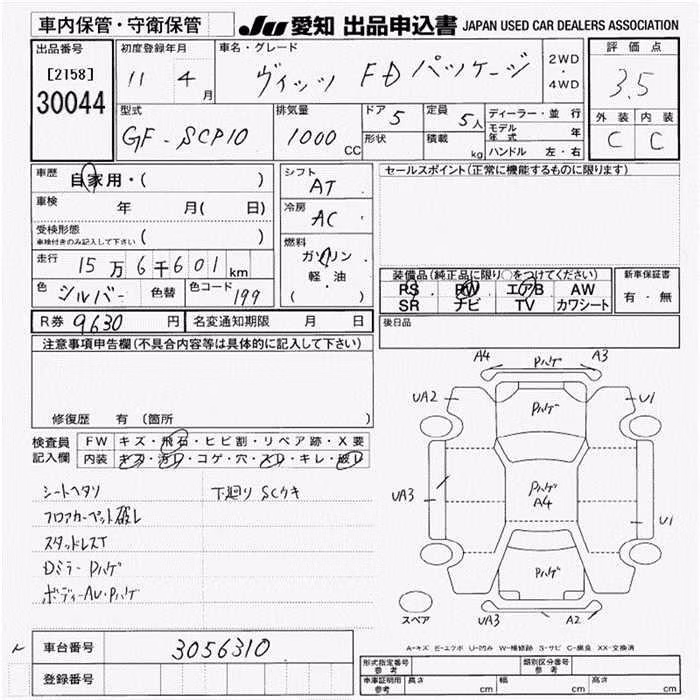 車内保管・守衛保管
JU 愛知 出品申込書 JAPAN USED CAR DEALERS ASSOCIATION
出品番号 初度登録年月 車名・グレード 2WD・4WD 評価点
[2158] 11 4月 ヴィッツ FDパッケージ 3.5
30044
型式 排気量 ドア 5 定員 5人 ディーラー・並行 外装 内装
GF-SCP10 1000CC 形状 積載 kg モデル年式 年 C C
ハンドル 左・右
車歴 自家用・( ) シフト AT セールスポイント(正常に機能するものに限ります)
車検 年 月( 日) 冷房 AC
受検形態 車検付きのみ記入して下さい ( ) 燃料 ガソリン
走行 15万6千601km 軽・油
( )
装備品(純正品に限り○をつけてください) 新車保証書
色 シルバー 色替 色コード 199 PS PW エアB AW 有・無
SR ナビ TV カワシート
R券 9630円 名変通知期限 月 日 後日品
注意事項申告欄(不具合内容等は具体的に記入して下さい)
修復歴 有 (箇所 )
検査員記入欄 FW キズ・飛石・ヒビ割・リペア跡・X要
内装 キズ・汚レ・コゲ・穴・スレ・キレ・破レ
シートヘタリ 下廻りSCケキ
フロアカーペット破レ
スタッドレスT
DミラーPハゲ
ボディーAU・Pハゲ
A4 Pハゲ A3
UA2 U1
Pハゲ
UA3 Pハゲ A4 U1
Pハゲ
スペア UA3 A2
A-キズ E-エクボ U-凹み W-補修跡 S-サビ C-腐食 XX-交換済
車台番号 3056310
登録番号
形式指定番号 参考 類別区分番号 参考
車庫証明用 参考 長さ cm 幅 cm 高さ cm